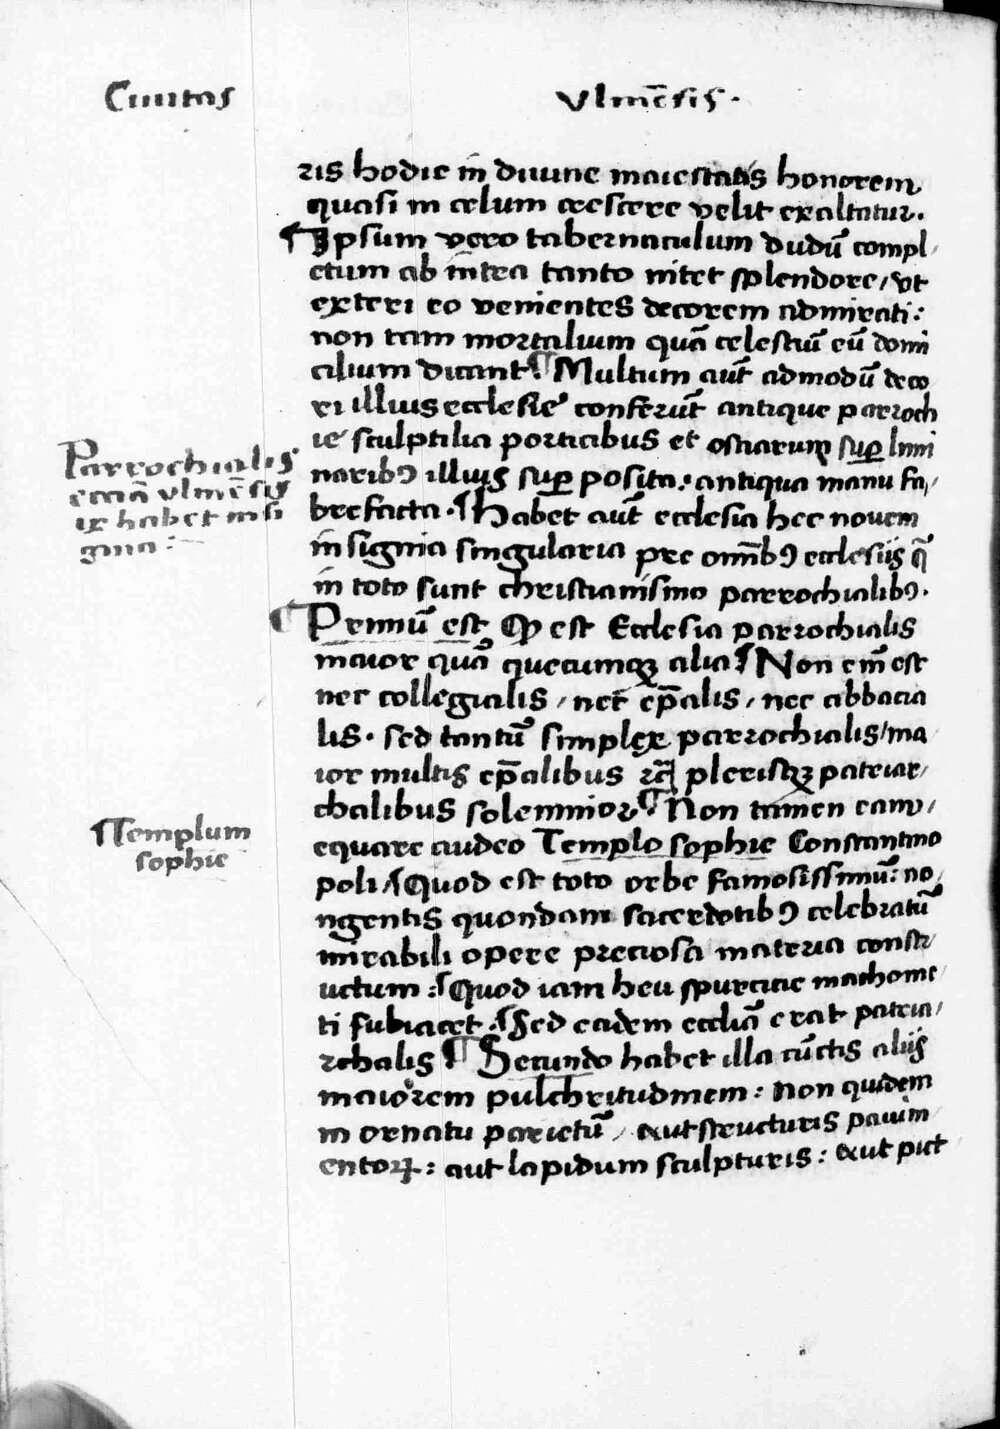 Ciuitas Vlmēsis.
ris hodie in diuine maiestatis honorem
quasi in celum crescere velit exaltatur.
¶ Ipsum vero tabernaculum dudū compl
etum ab intea tanto nitet splendore, vt
exteri eo venientes decorem admirati:
non tam mortalium quā celestiū eū domi
cilium dicant. ¶ Multum aūt admodū deco
ri illius ecclesie conferūt antique parroch
ie sculptilia porticibus et ostiarum suꝑ limi
naribꝰ illius suꝑ posita: antiqua manu fa,
brefacta. ¶ Habet aūt ecclesia hec nouem
insignia singularia pre omībꝰ ecclesiis q̄
in toto sunt christianismo parrochialibꝰ.
Parrochialis
eccīa vlmēsis
ix habet insi
gnia:
¶ Primū est Ꝙ est Ecclesia parrochialis
maior quā quecumqꝫ alia ¶ Non em̄ est
nec collegialis, nec ep̄alis, nec abbacia
lis. sed tantū simplex parrochialis, ma
ior multis ep̄alibus plerisqꝫ patriar,
chalibus solemnior ¶ Non tamen eam,
equare audeo Templo sophie Constantino
poli, ¶ Quod est toto orbe famosissimū: no,
¶ Templum
sophie
ngentis quondam sacerdotibꝰ celebratū
mirabili opere preciosa materia constr
uctum: ¶ Quod iam heu spurcicie machome
ti subiacet. ¶ Sed eadem ecclīa erat patria,
rchalis ¶ Secundo habet illa cūctis aliis
maiorem pulchritudinem: non quidem
in ornatu parietū, aut structuris pauim
entoꝝ: aut lapidum sculpturis: aut pict